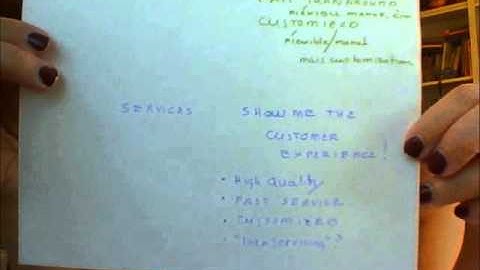 FAST TURNAROUND
flexible manuf.
CUSTOMIZED
flexible/manuf
mass customization
SERVICES SHOW ME THE
CUSTOMER
EXPERIENCE!
• High Quality
• FAST SERVICE
• CUSTOMIZED